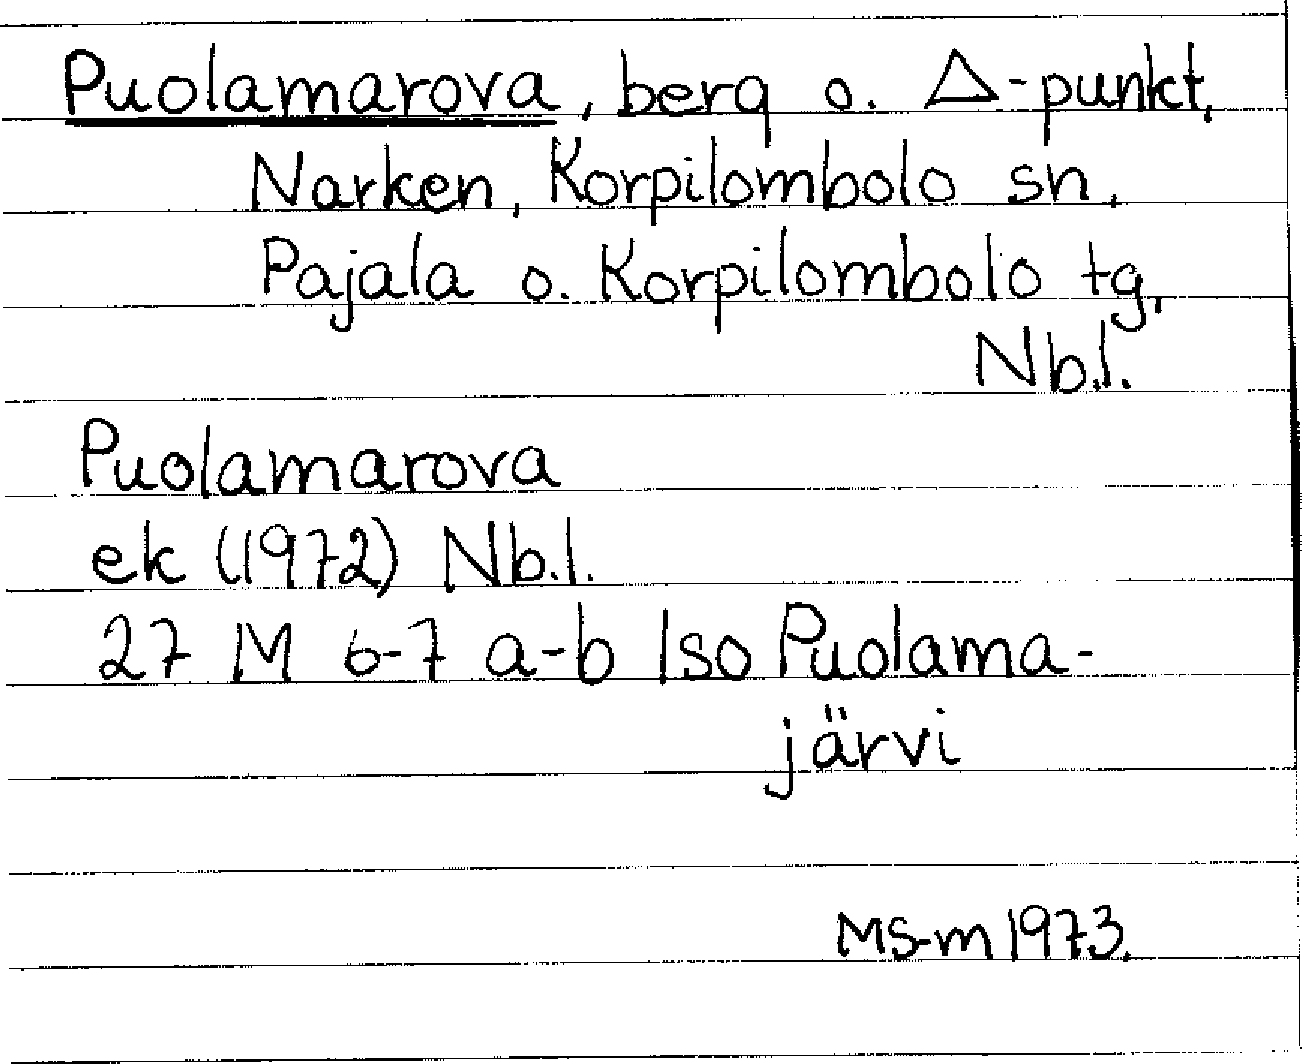 Puolamarova, berg o. △-punkt,
Narken, Korpilombolo sn,
Pajala o. Korpilombolo tg,
Nb.l.
Puolamarova
ek (1972) Nb.l.
27 M 6-7 a-b Iso Puolama-
järvi
MS-m 1973.